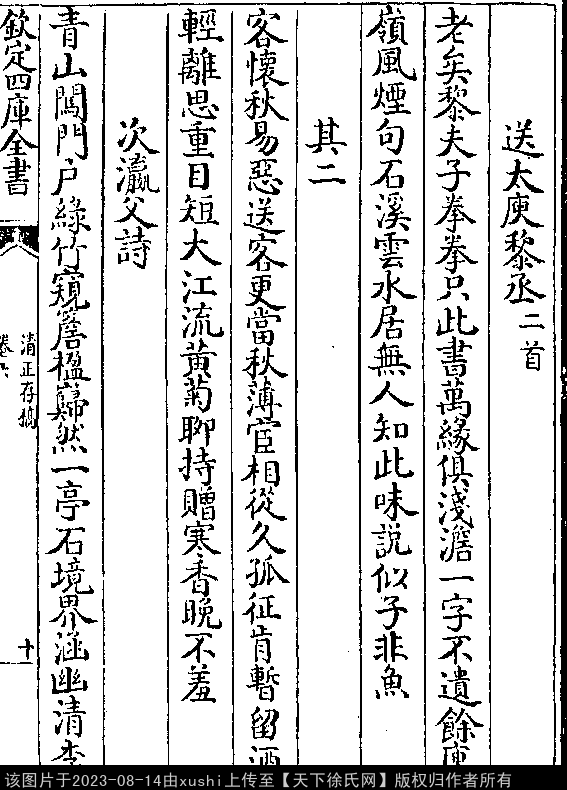 送太庾黎丞二首
老矣黎夫子拳拳只此書萬緣俱淺澹一字不遺餘庾
嶺風煙句石溪雲水居無人知此味說似子非魚
其二
客懷秋易惡送客更當秋薄宦相從久孤征肯暫留酒
輕離思重日短大江流黃菊聊持贈寒香晚不羞
次瀛父詩
青山闖門戶綠竹窺簷楹巋然一亭石境界涵幽清李
欽定四庫全書
清正存稿
卷六
十
该图片于2023-08-14由xushi上传至【天下徐氏网】版权归作者所有